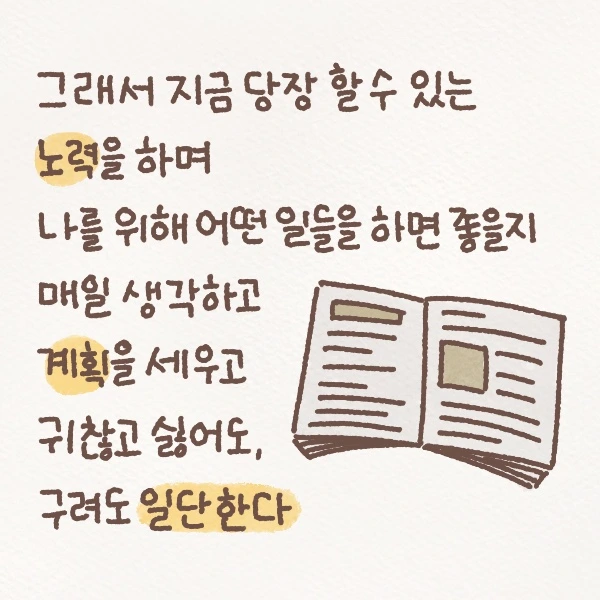 그래서 지금 당장 할 수 있는
노력을 하며
나를 위해 어떤 일들을 하면 좋을지
매일 생각하고
계획을 세우고
귀찮고 싫어도,
구려도 일단 한다